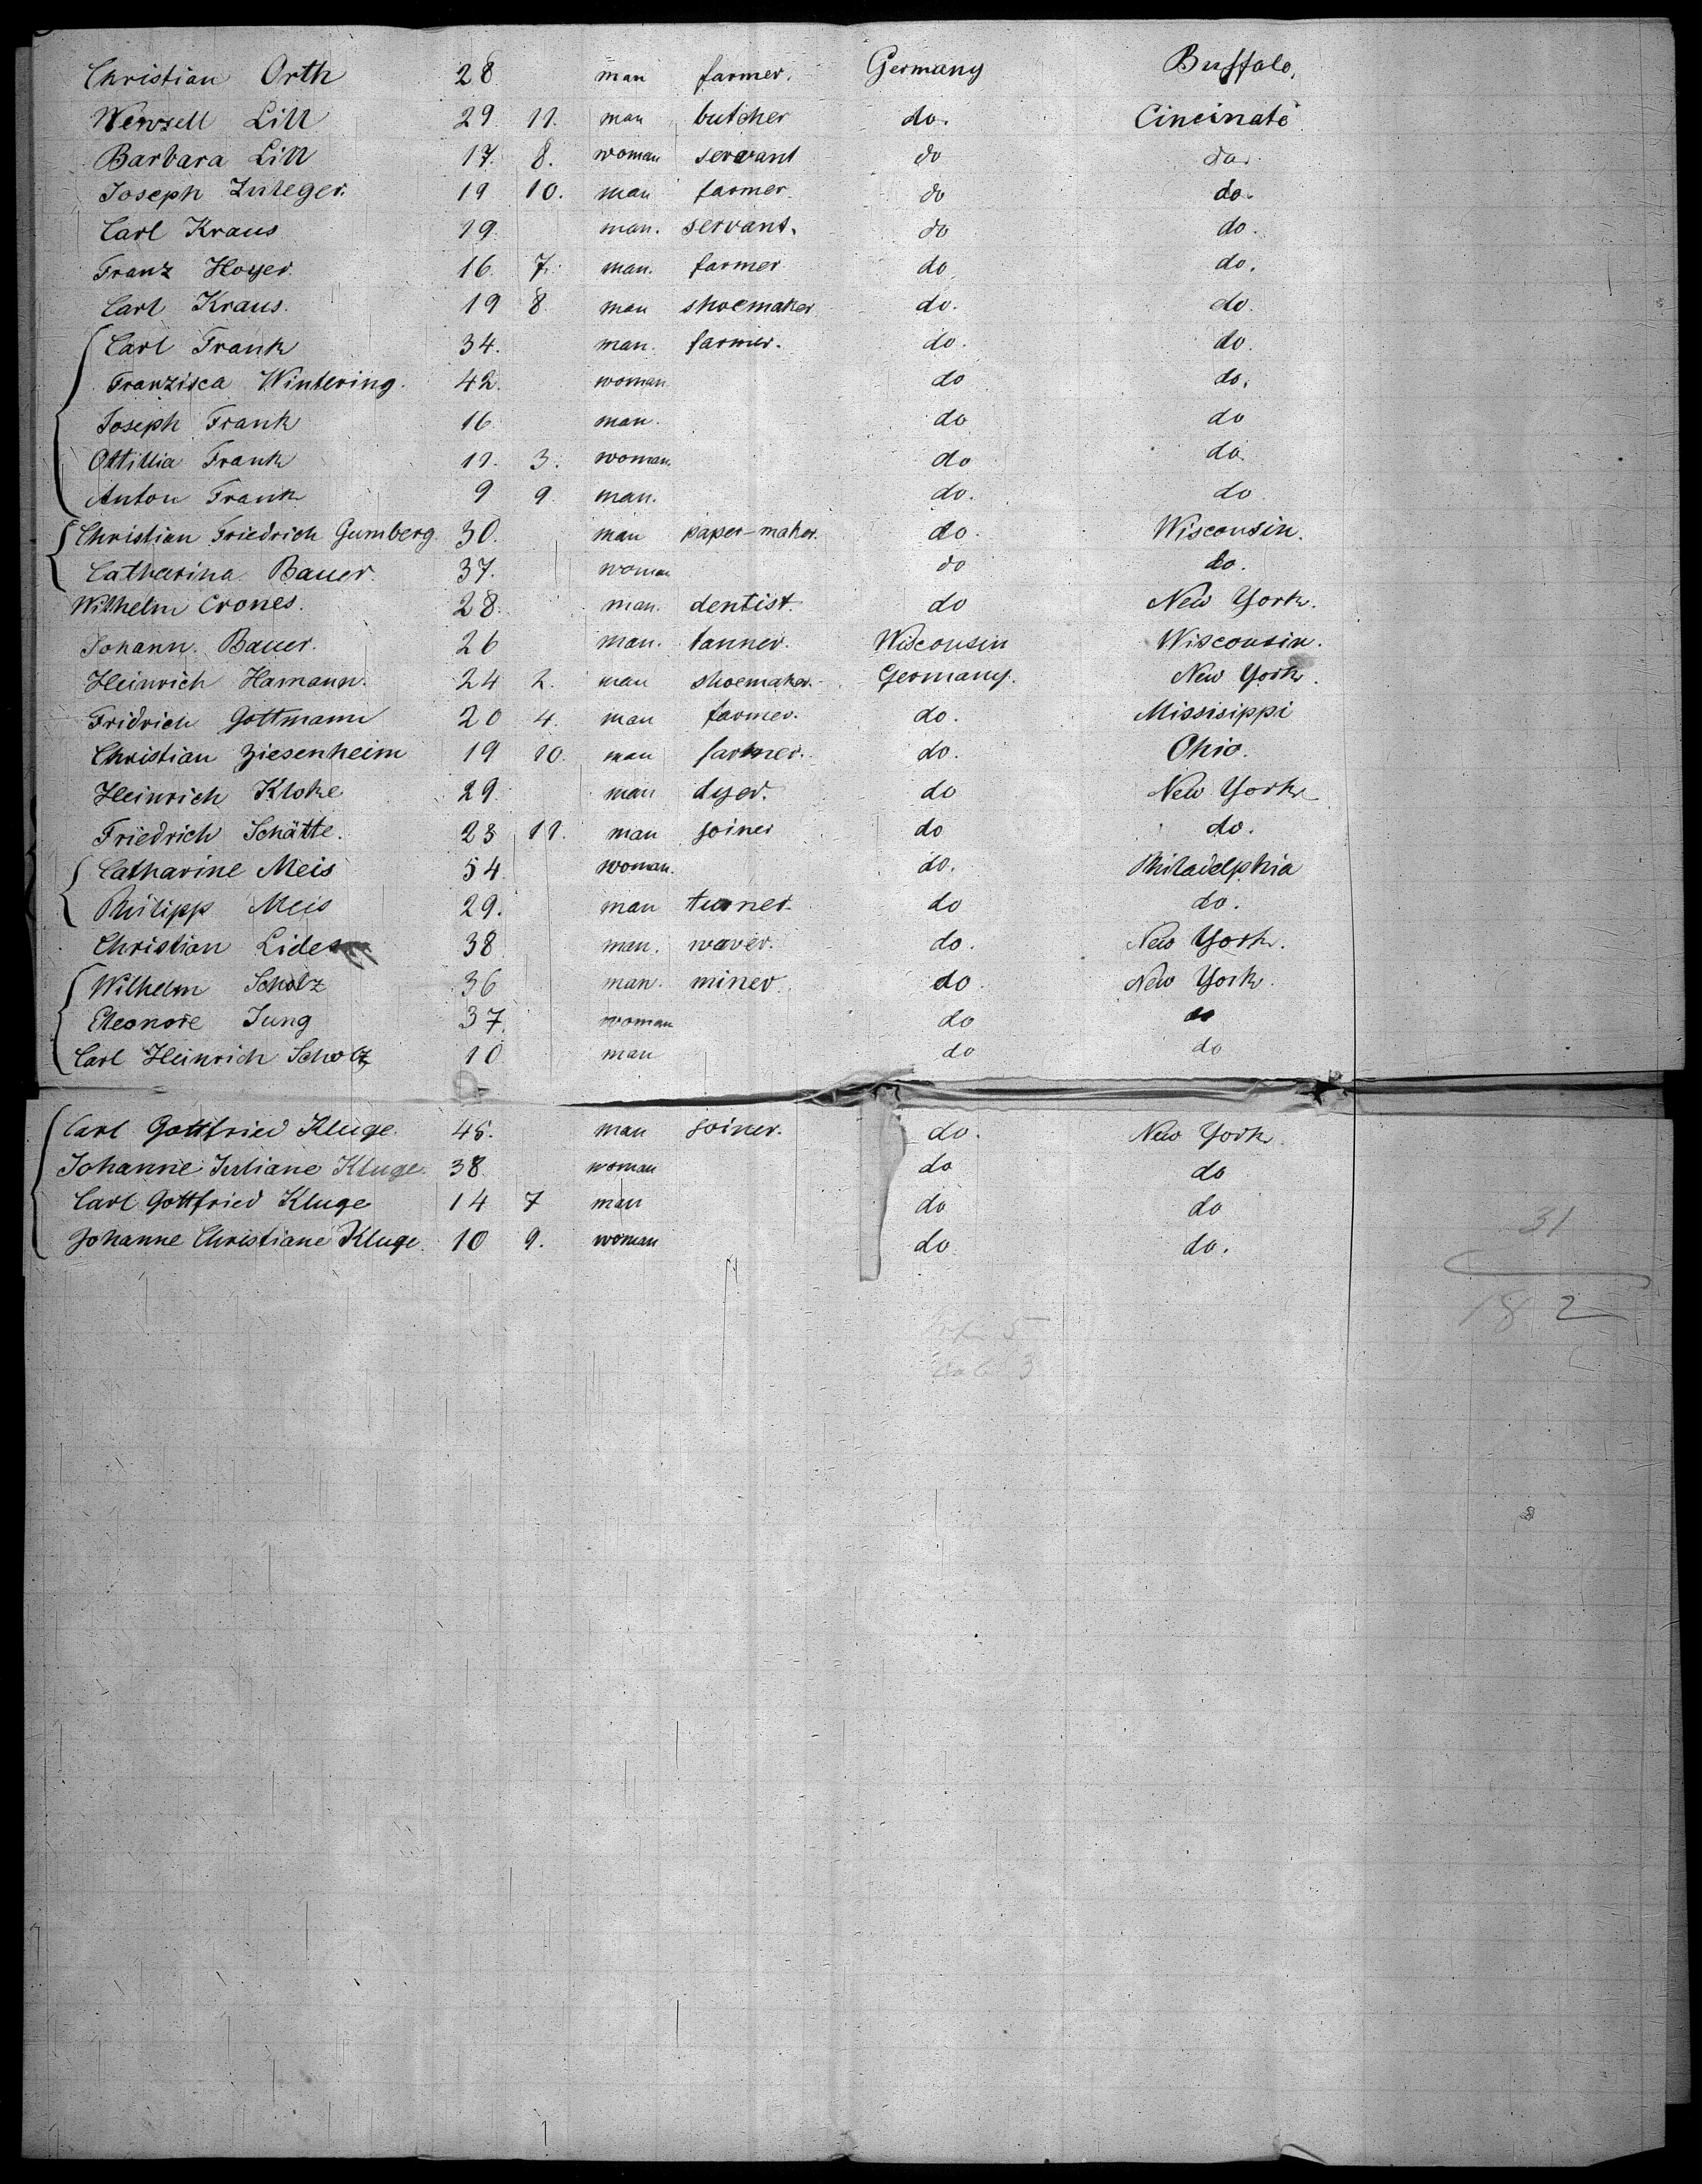 Christian Orth 28 man farmer. Germany Buffalo,
Wenzell Lill 29. 11. man butcher do. Cincinati
Barbara Lill 17. 8. woman servant do do.
Joseph 19 10. man farmer. do do.
Carl Kraus 19. man. servant. do do.
Franz Hoyer. 16. 7. man. farmer do do.
Carl Kraus. 19 8 man shoemaker do. do.
Carl Frank 34. man. farmer. do. do.
Franzisca Wintering. 42. woman do do.
Joseph Frank 16. man. do do
Ottillia Frank 11. 3. woman. do do.
Anton Frank 9 9. man. do. do
Christian Friedrich Gumberg. 30. man paper-maker. do. Wisconsin.
Catharina Bauer. 37. woman do do.
Wilhelm Crones. 28. man. dentist. do New York.
Johann. Bauer. 26 man. tanner. Wisconsin Wisconsin.
Heinrich Hamann. 24 2. man shoemaker. Germany. New York.
Fridrich Gottmann 20 4. man farmer. do. Missisippi
Christian Ziesenheim 19 10. man farmer. do. Ohio.
Heinrich Kloke 29. man dyer. do New York
Friedrich Schätte. 23 11. man joiner do do.
Catharine Meis 54. woman. do. Philadelphia
Philipp Meis 29. man turner do do.
Christian 38 man. waver. do. New York.
Wilhelm Scholz 36 man. miner. do. New York.
Eleonore Jung 37. woman do do
Carl Heinrich Scholz 10 man do do
Carl Gottfried Kluge. 45. man joiner. do. New York.
Johanne Juliane Kluge. 38 woman do do
Carl Gottfried Kluge 14 7 man do do
Johanne Christiane Kluge. 10 9. woman do do.
31
182